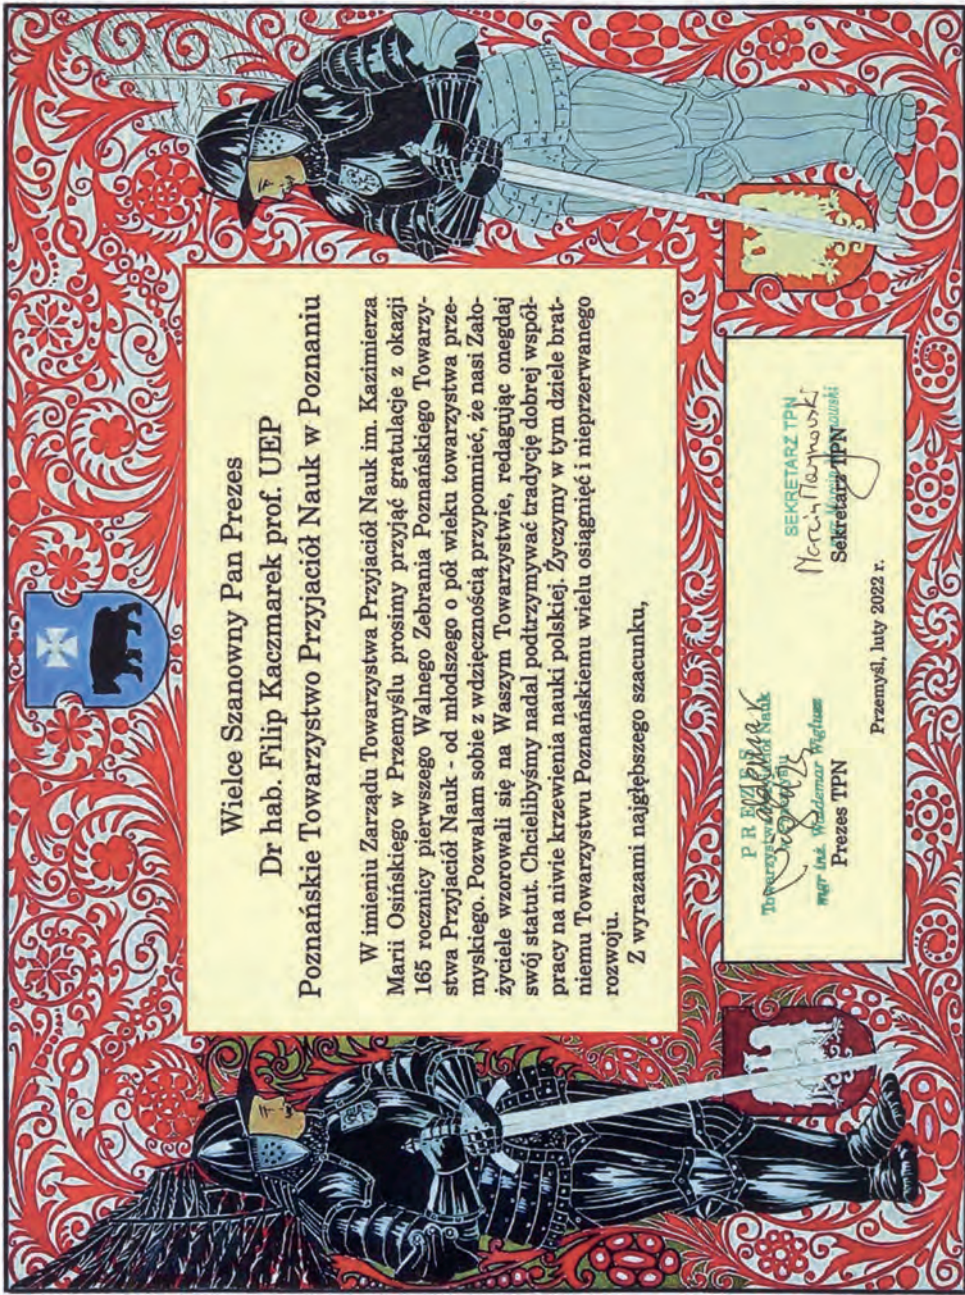 Wielce Szanowny Pan Prezes
Dr hab. Filip Kaczmarek prof. UEP
Poznańskie Towarzystwo Przyjaciół Nauk w Poznaniu
W imieniu Zarządu Towarzystwa Przyjaciół Nauk im. Kazimierza
Marii Osińskiego w Przemyślu prosimy przyjąć gratulacje z okazji
165 rocznicy pierwszego Walnego Zebrania Poznańskiego Towarzy-
stwa Przyjaciół Nauk - od młodszego o pół wieku towarzystwa prze-
myskiego. Pozwalam sobie z wdzięcznością przypomnieć, że nasi Zało-
życiele wzorowali się na Waszym Towarzystwie, redagując onegdaj
swój statut. Chcielibyśmy nadal podtrzymywać tradycję dobrej współ-
pracy na niwie krzewienia nauki polskiej. Życzymy w tym dziele brat-
niemu Towarzystwu Poznańskiemu wielu osiągnięć i nieprzerwanego
rozwoju.
Z wyrazami najgłębszego szacunku,
PREZES
Towarzystwa Przyjaciół Nauk
w Przemyślu
mgr inż. Waldemar Wiglusz
Prezes TPN
SEKRETARZ TPN
Marcin Marynowski
Sekretarz TPN
Przemyśl, luty 2022 r.